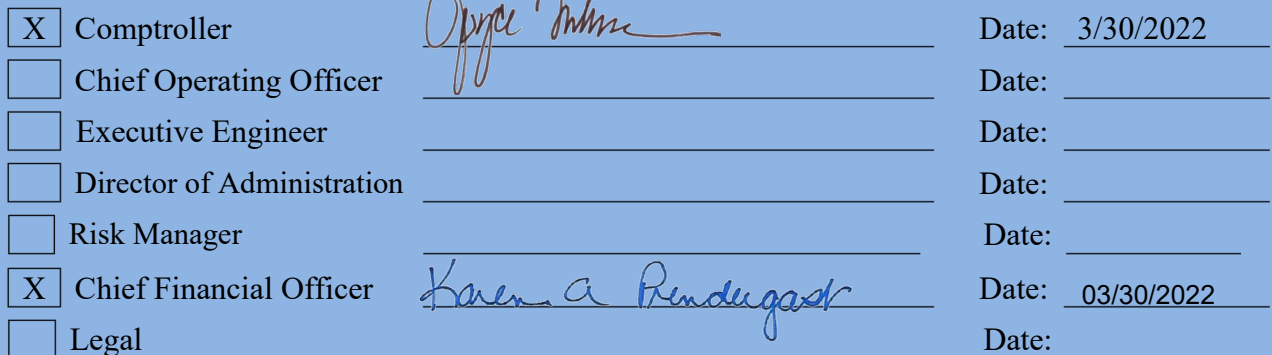 X Comptroller Date: 3/30/2022
Chief Operating Officer Date:
Executive Engineer Date:
Director of Administration Date:
Risk Manager Date:
X Chief Financial Officer Karen A Pendergast Date: 03/30/2022
Legal Date: